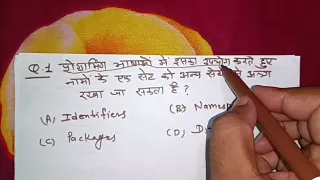 Q.1 प्रोग्रामिंग भाषाओं में इसका उपयोग करते हुए
नामों के एक सेट को अन्य से अलग
रखा जा सकता है ?
(A) Identifiers (B)
(C) Packages (D)